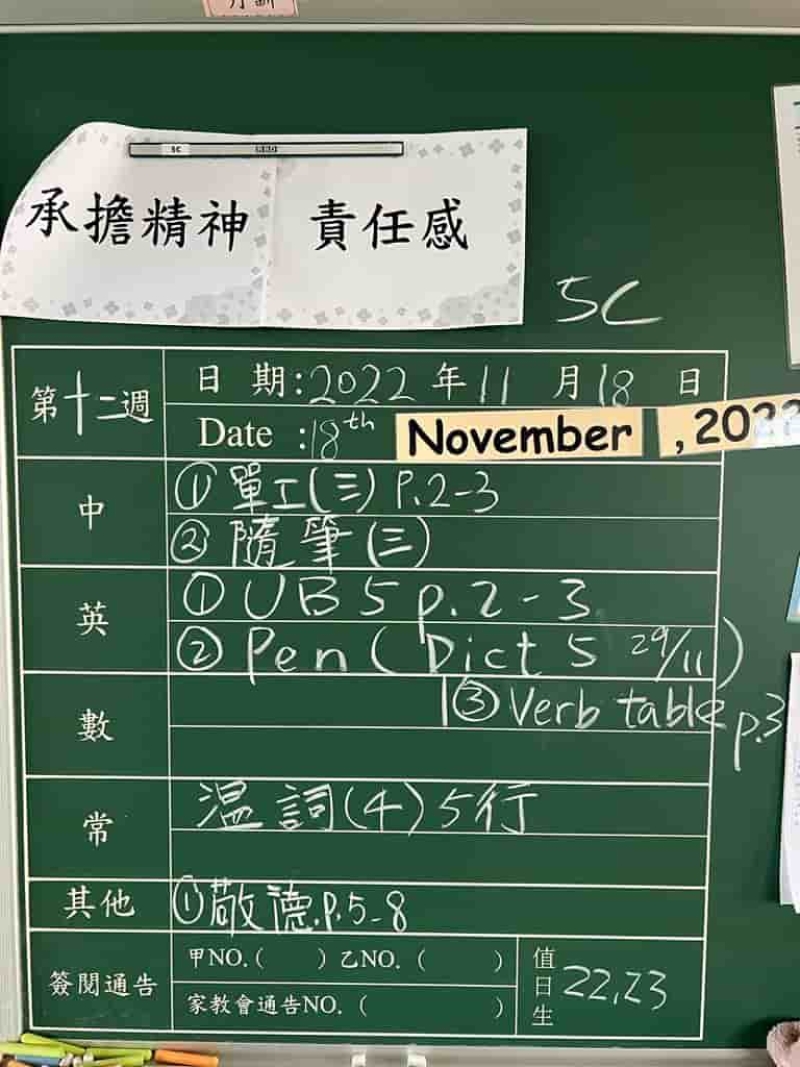 承擔精神 責任感
5C
第十二週
日期:2022年11月18日
Date :18th November , 2022
中
① 單工(三) P.2-3
② 隨筆(三)
英
① UB 5 p.2-3
② Pen ( Dict 5 29/11 )
③ Verb table p.3
數
常
温詞(4) 5行
其他
① 敬德.P.5-8
簽閱通告
甲NO.( ) 乙NO. ( )
家教會通告NO. ( )
值日生
22,23